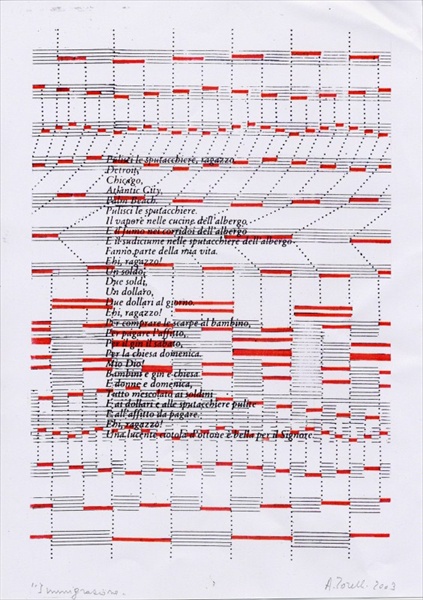 Pulisci le sputacchiere, ragazzo.
Detroit,
Chicago,
Atlantic City,
Palm Beach.
Pulisci le sputacchiere.
Il vapore nelle cucine dell'albergo
E il fumo nei corridoi dell'albergo
E il sudiciume nelle sputacchiere dell'albergo
Fanno parte della mia vita.
Ehi, ragazzo!
Un soldo,
Due soldi,
Un dollaro,
Due dollari al giorno.
Ehi, ragazzo!
Per comprare le scarpe al bambino,
Per pagare l'affitto,
Per il gin il sabato,
Per la chiesa domenica.
Mio Dio!
Bambini e gin e chiesa
E donne e domenica,
Tutto mescolato ai soldini
E ai dollari e alle sputacchiere pulite
E all'affitto da pagare.
Ehi, ragazzo!
Una lucente ciotola d'ottone è bella per il Signore.
"Immigrazione. A. Torelli 2003